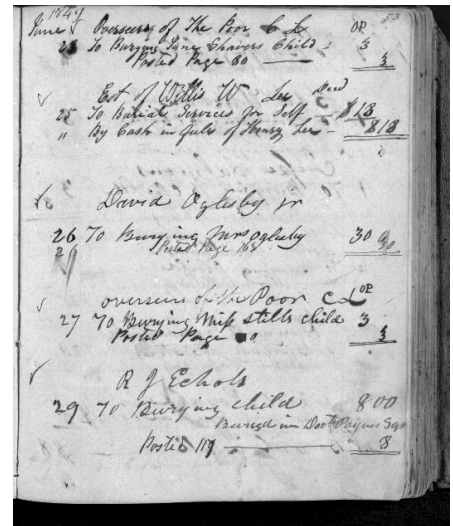 1849 53
June Overseers of The Poor C L OP
23 To Burying Jane Shavers Child - 3
Posted Page 80 3
Est of Willis W Lee Decd
25 To Burial Services for Self $18
" By Cash in full of Henry Lee - $18
David Oglesby Jr
26 To Burying Mrs Oglesby 30
Posted Page 30
overseers of the Poor C L OP
27 To Burying Miss Stills child 3
Posted Page 3
R J Echols
29 To Burying child 8 00
Buried in Doct Paynes Sqr
Posted 119 8